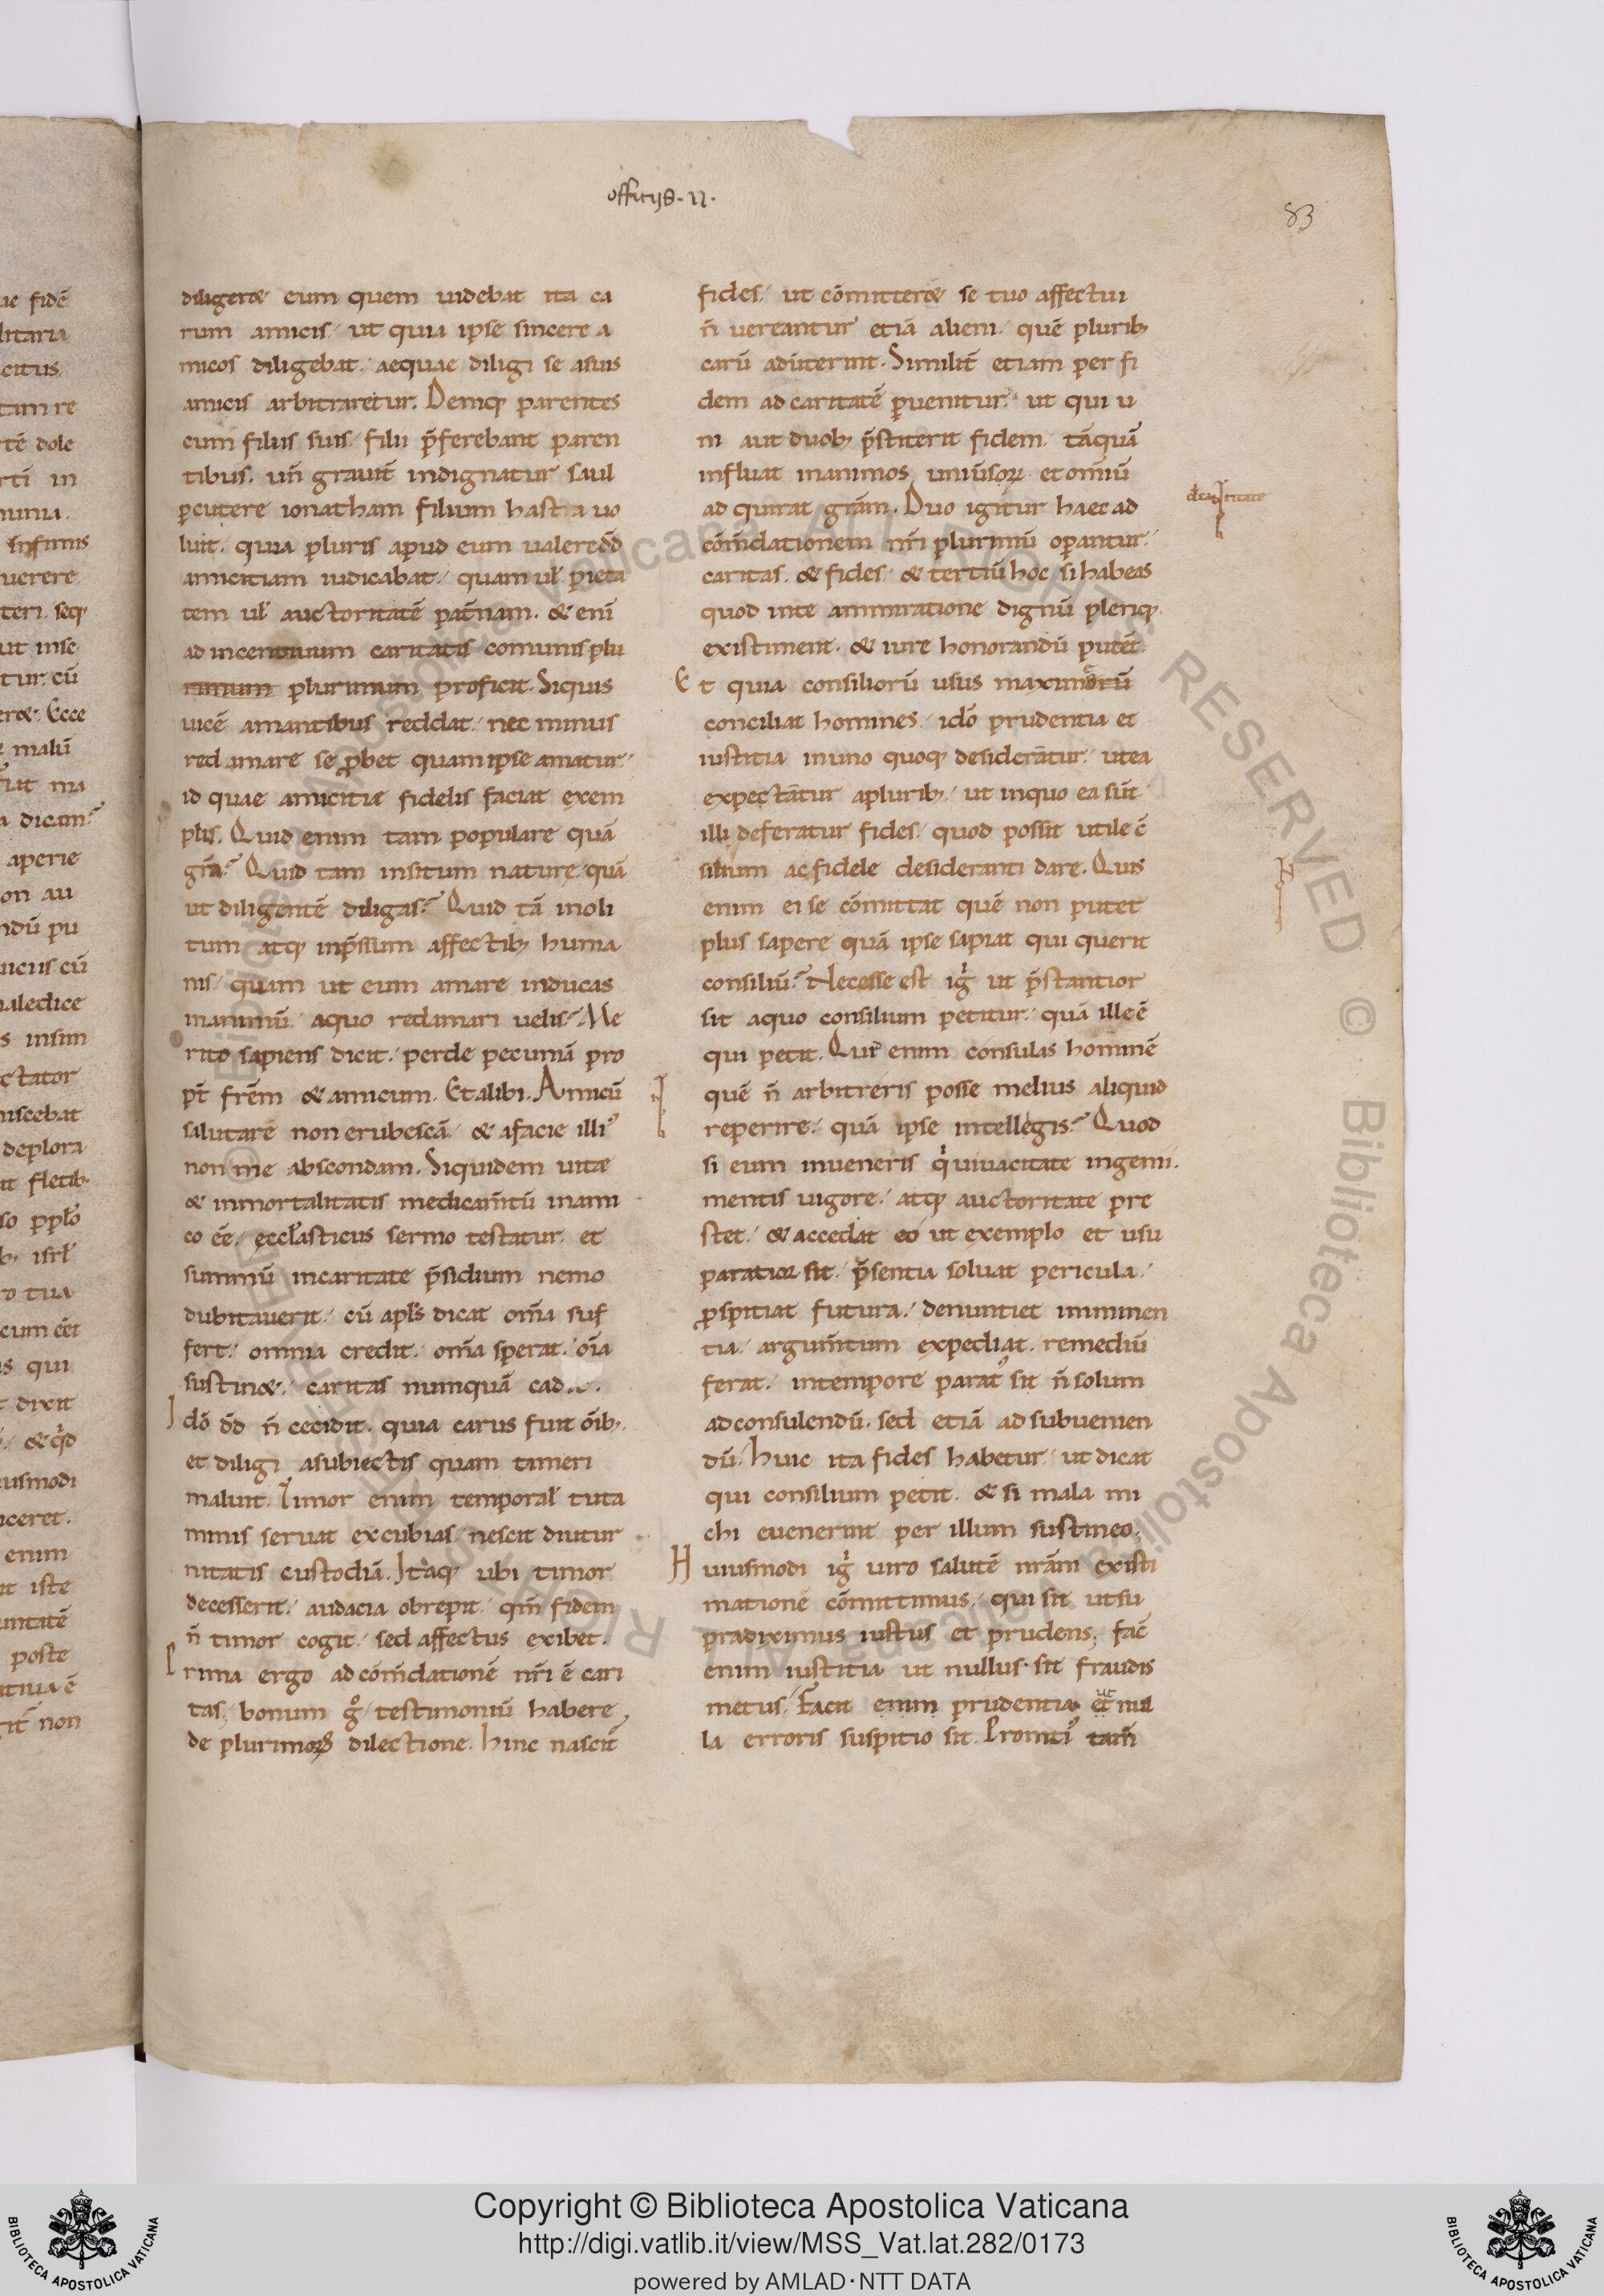 officijs · II ·
83
diligeret eum quem uidebat ita ca
rum amicis / ut quia ipse sincere a
micos diligebat / aequae diligi se asuis
amicis arbitraretur. Deniq; parentes
eum filiis suis / filii p̄ferebant paren
tibus. un̄ grauit̄ indignatur saul
p̄cutere ionatham filium hasta uo
luit. quia pluris apud eum ualere dd̄
amicitiam iudicabat / quam ul̄ pieta
tem ul̄ auctoritatē pat̄nam. & enī
ad incentiuum caritatis comunis plu
rimum plurimum proficit. Siquis
uicē amantibus reddat / nec minus
redamare se p̄bet quam ipse amatur /
id quae amicitiae fidelis faciat exem
plis. Quid enim tam populare quā
gr̄a? Quid tam insitum nature / quā
ut diligentē diligas? Quid tā inoli
tum atq; inp̄ssum affectib; huma
nis / quam ut eum amare inducas
inanimū / aquo redamari uelis? Me
rito sapiens dicit / perde pecuniā pro
pt̄ frēm & amicum. Et alibi. Amicū
salutare non erubescā / & afacie illi᾽
non me abscondam. Siquidem uitae
& inmortalitatis medicam̄tū inami
co eē / eccl̄asticus sermo testatur. et
summū incaritate p̄sidium nemo
dubitauerit / cū apl̄s dicat om̄a suf
fert / omnia credit / om̄a sperat / oīa
sustinet / caritas numquā cad
Idō dd̄ n̄ cecidit. quia carus fuit oīb;.
et diligi asubiectis quam timeri
maluit. Timor enim temporal̄ tuta
minis seruat excubias / nescit diutur
nitatis custodiā. Itaq; ubi timor
decesserit / audacia obrepit / qm̄ fidem
n̄ timor cogit / sed affectus exibet.
Prima ergo ad cōm̄dationē nr̄i ē cari
tas / bonum gͦ / testimoniū habere
de plurimorꝝ dilectione. Hinc nascit̄
fides / ut cōmitteret se tuo affectui
n̄ uereantur etiā alieni / quē plurib;
carū aduīterint. Similit̄ etiam per fi
dem ad caritatē p̄uenitur / ut qui u
ni aut duob; p̄stiterit fidem / tāquā
influat inanimos uniūsorꝝ. et omīū
ad quirat grām. Duo igitur haec ad
cōm̄dationem nr̄i plurimū operantur /
caritas. & fides / & tertiū hoc si habeas
quod inte ammiratione dignū pleriq;
existiment. & iure honorandū putēt.
Et quia consiliorū usus maximorū
conciliat homines / idō prudentia et
iustitia inuno quoq; desiderātur / ut ea
expectātur aplurib; / ut inquo ea sūt /
illi deferatur fides / quod possit utile c̄
silium ac fidele desideranti dare. Quis
enim ei se cōmittat quē non putet
plus sapere quā ipse sapiat qui querit
consiliū? Necesse est igr̄ ut p̄stantior
sit aquo consilium petitur / quā ille ē
qui petit. Qur̄ enim consulas hominē
quē n̄ arbitreris posse melius aliquid
reperire / quā ipse intellegis? Quod
si eum inueneris q̄ uiuacitate ingenii.
mentis uigore / atq; auctoritate pre
stet / & accedat eo ut exemplo et usu
paratior sit / p̄sentia soluat pericula /
p̄spitiat futura / denuntiet imminen
tia / argum̄tum expediat / remediū
ferat / intempore parat᾽ sit n̄ solum
ad consulendū. sed etiā ad subuenien
dū. Huic ita fides habetur / ut dicat
qui consilium petit. & si mala mi
chi euenerint per illum sustineo.
Huiusmodi igr̄ uiro salutē nrām existi
mationē cōmittimus / qui sit ut su
pradiximus iustus et prudens; fac̄
enim iustitia ut nullus sit fraudis
metus / Facit enim prudentia et ut nul
la erroris suspitio sit. Promti᾽ tam̄
de caritate